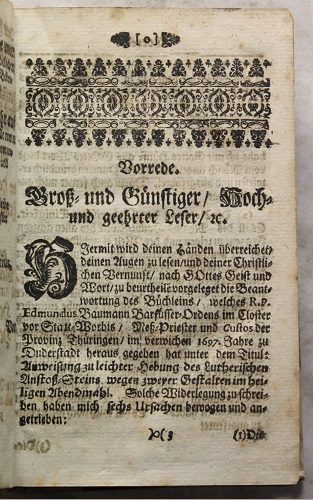 [ o ]
Vorrede.
Groß- und Günstiger / Hoch-
und geehrter Leser / ꝛc.
HJermit wird deinen Händen überreichet /
deinen Augen zu lesen / und deiner Christli-
chen Vernunft / nach GOttes Geist und
Wort / zu beurtheilē vorgeleget die Beant-
wortung des Büchleins / welches R. P.
Edmundus Baumann Barfüsser-Ordens im Closter
vor Statt-Worbis / Meß-Priester und Custos der
Provinz Thüringen / im verwichen 1697. Jahre zu
Duderstadt heraus gegeben hat unter dem Titul:
Anweisung zu leichter Hebung des Lutherischen
Anstoß-Steins wegen zweyer Gestalten im hei-
ligen Abendmahl. Solche Widerlegung zu schrei-
ben haben mich sechs Ursachen bewogen und an-
getrieben:
)( 3
(1) Die